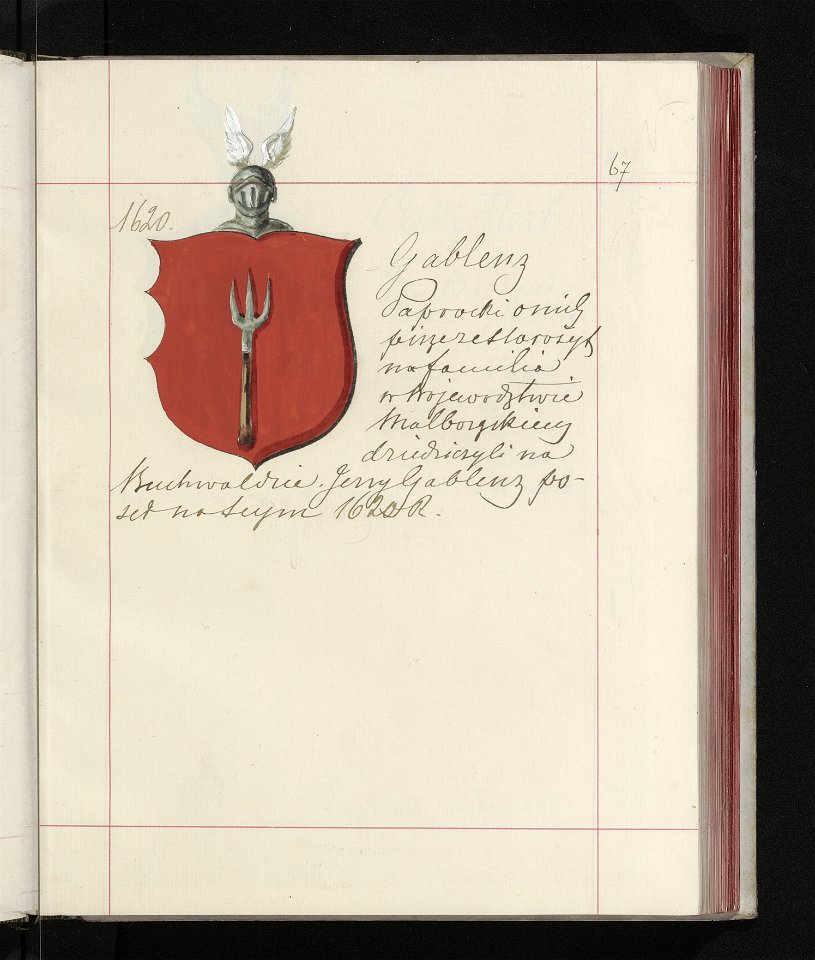 67
1620.
Gablenz
Paprocki o nich
pisze starożyt
na familia
w Województwie
Malborgskiem
dziedziczyli na
Buchwaldzie. Jerzy Gablenz po-
seł na seym 1620 R.